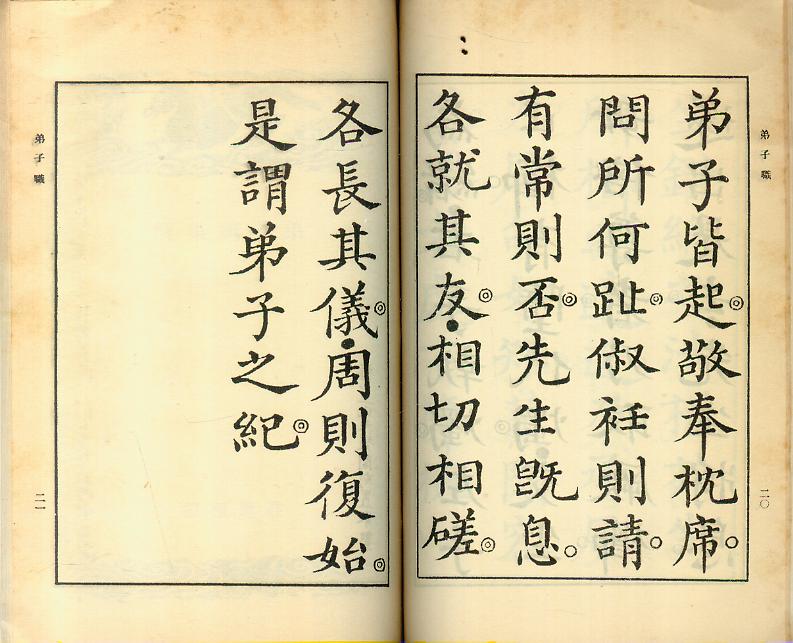 弟子職
弟子皆起◎敬奉枕席○
問所何趾◎俶衽則請○
有常則否◎先生旣息○
各就其友◎相切相磋◎
二〇
各長其儀◎周則復始◎
是謂弟子之紀◎
弟子職
二一